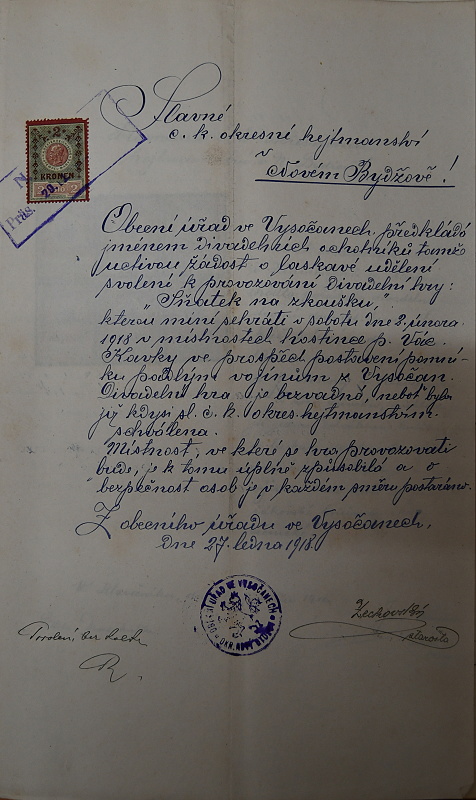 Slavné
c. k. okresní hejtmanství
v Novém Bydžově!
2
KRONEN
2 2
Präs. 29.
Obecní úřad ve Vysočanech předkládá
jménem divadelních ochotníků tamže
uctivou žádost o laskavé udělení
svolení k provozování divadelní hry:
"Sňatek na zkoušku,"
kterou míní sehráti v sobotu dne 2. února
1918 v místnostech hostince p. Vác.
Kavky ve prospěch postavení pomní-
ku padlým vojínům z Vysočan.
Divadelní hra je bezvadná, neboť byla
již kdysi sl. c. k. okres. hejtmanstvím
schválena.
Místnost, ve které se hra provozovati
bude, je k tomu úplně způsobilá a o
bezpečnost osob je v každém směru postaráno.
Z obecního úřadu ve Vysočanech,
dne 27. ledna 1918.
OBECNÍ ÚŘAD VE VYSOČANECH
OKR. NOVÝ BYDŽOV
starosta